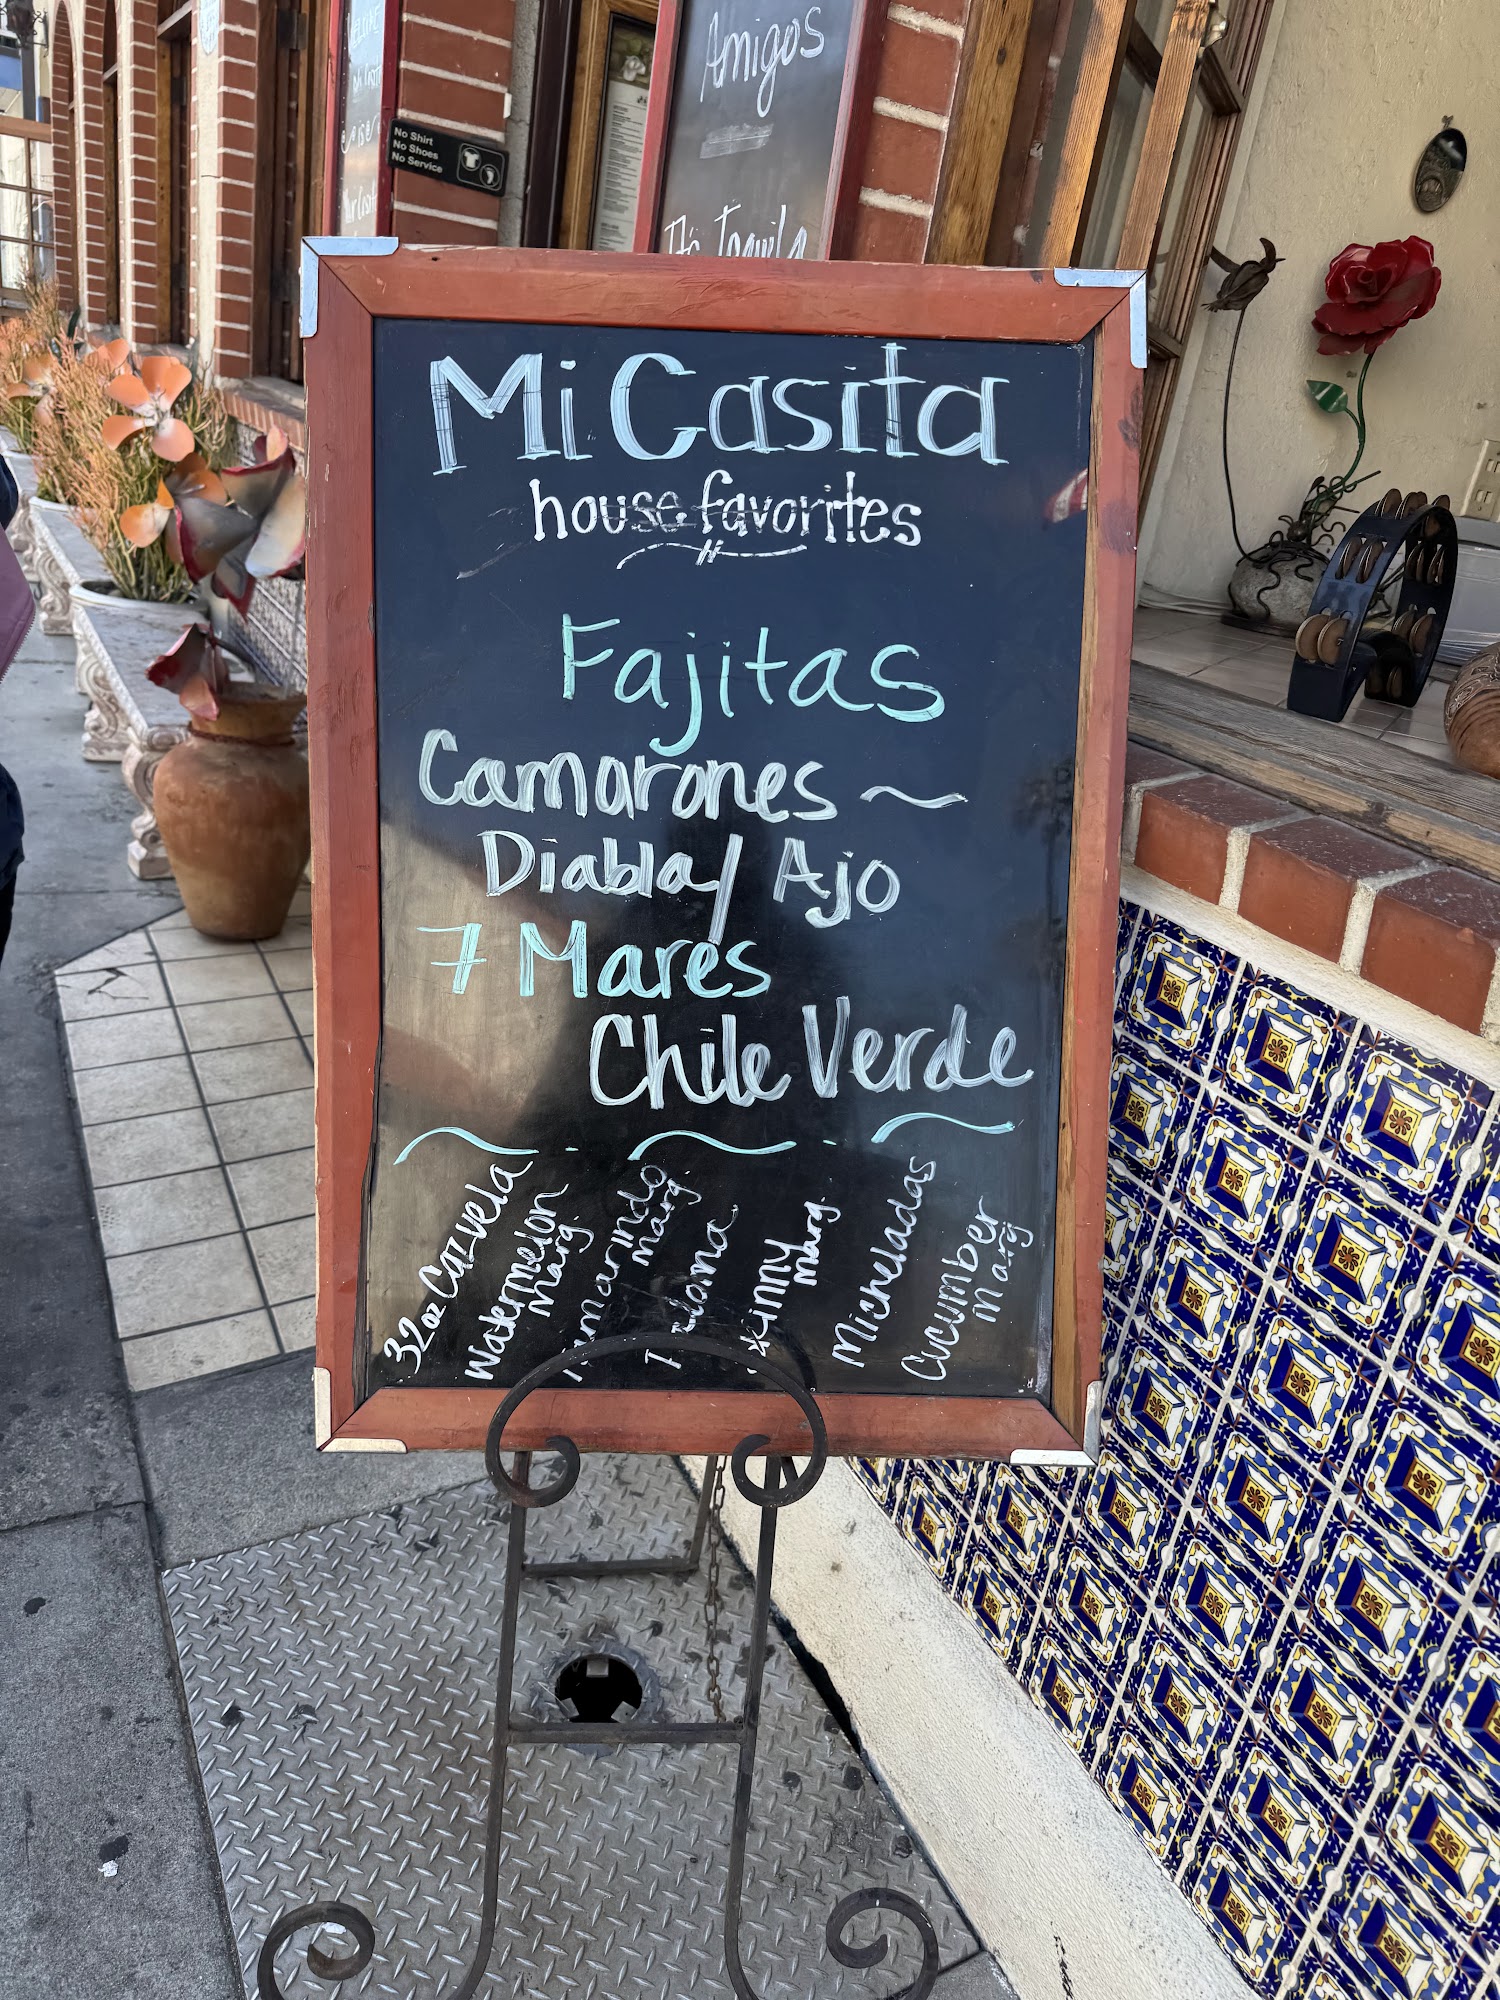 No Shirt
No Shoes
No Service
Amigos
Tequila
Mi Casita
house favorites
Fajitas
Camarones ~
Diabla/ Ajo
7 Mares
Chile Verde
32oz Cazuela
Watermelon
Marg.
Marg.
Marg.
Micheladas
Cucumber
Marg